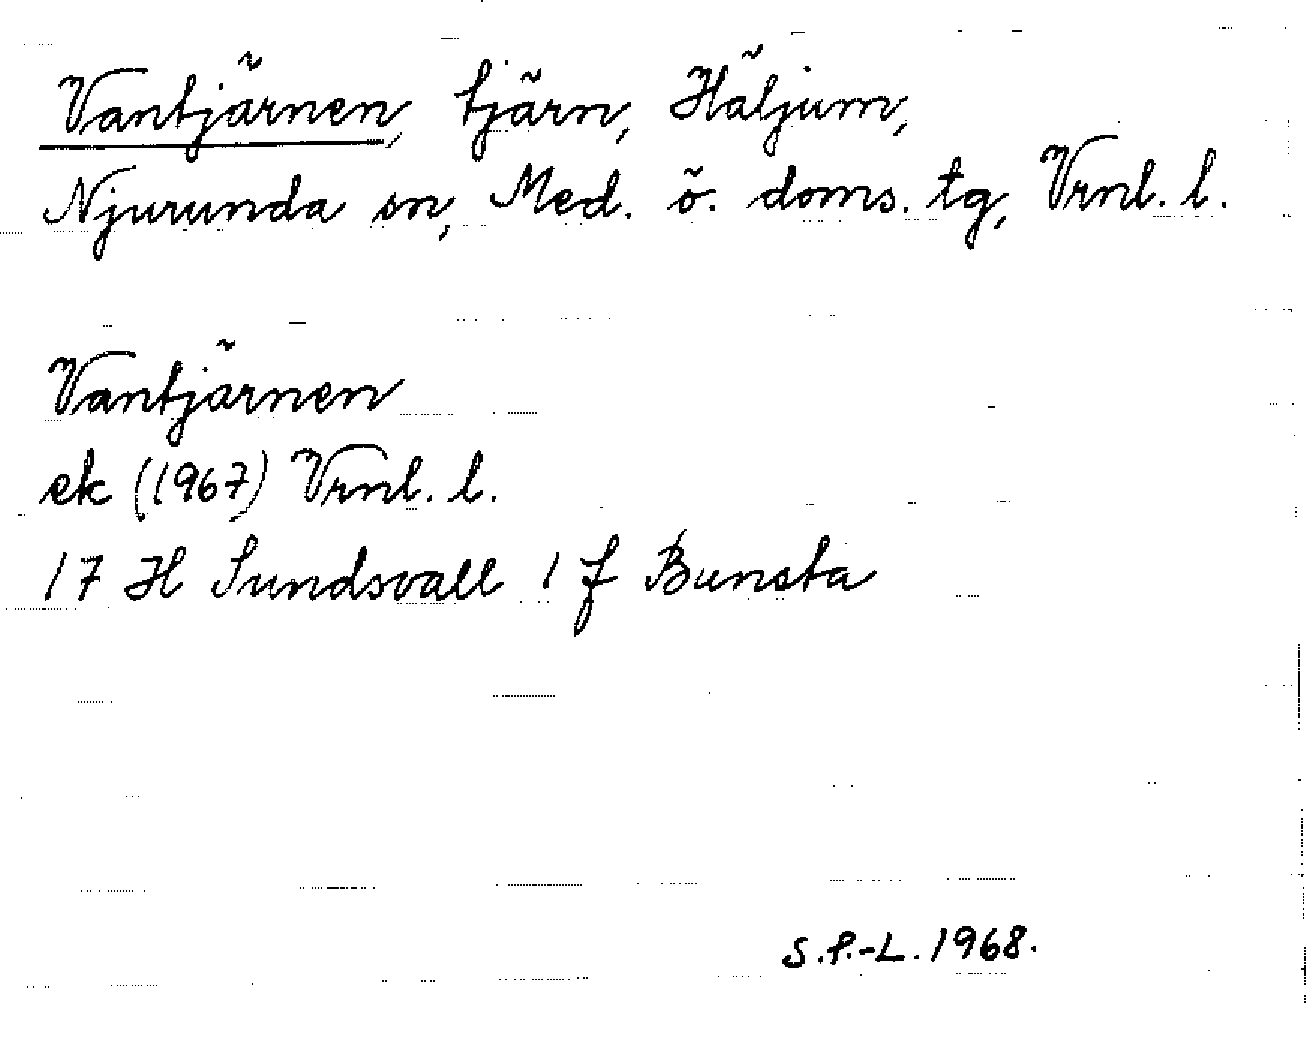 Vantjärnen, tjärn, Häljum,
Njurunda sn, Med. ö. doms. tg, Vrnl. l.
Vantjärnen
ek (1967) Vrnl. l.
17 H Sundsvall 1 f Bunsta
S.P.-L. 1968.